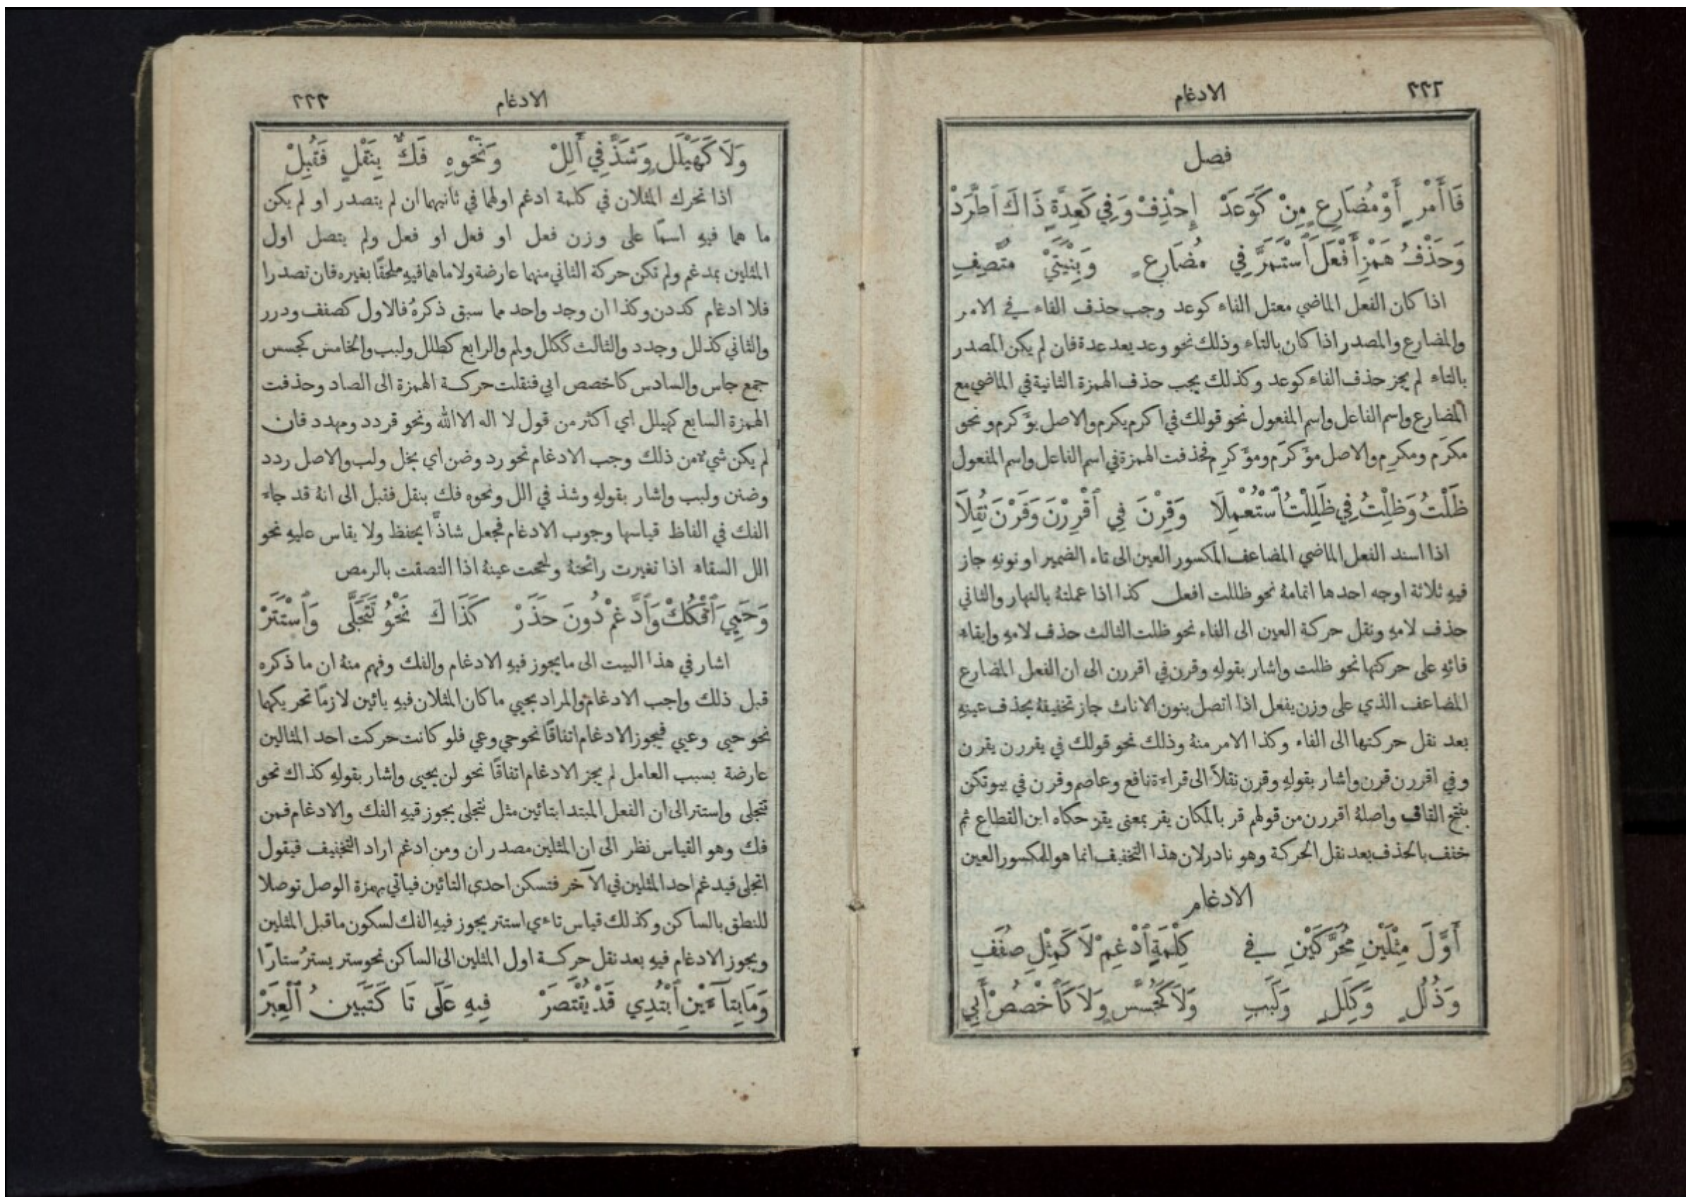 ٢٢٦
الادغام
فصل
فَاأَمْرٍ أَوْ مُضَارِعٍ مِنْ كَوَعَدْ إِحْذِفْ وَفِي كَعِدَةٍ ذَاكَ اَطَّرَدْ
وَحَذْفُ هَمْزِ أَفْعَلَ اَسْتَمَرَّ فِي مُضَارِعٍ وَبِنْيَتَيْ مُتَّصِفِ
اذا كان الفعل الماضي معتل الفاء كوعد وجب حذف الفاء في الامر
والمضارع والمصدر اذا كان بالتاء وذلك نحو وعد يعد عدة فان لم يكن المصدر
بالتاء لم يجز حذف الفاء كوعد وكذلك يجب حذف الهمزة الثانية في الماضي مع
المضارع واسم الفاعل واسم المفعول نحو قولك في اكرم يكرم والاصل يؤكرم ونحو
مكرَم ومكرِم والاصل مؤكرَم ومؤكرِم فحذفت الهمزة في اسم الفاعل واسم المفعول
ظَلْتُ وَظِلْتُ فِي ظَلِلْتُ اَسْتُعْمِلَا وَقِرْنَ فِي اَقْرِرْنَ وَقَرْنَ نُقِلَا
اذا اسند الفعل الماضي المضاعف المكسور العين الى تاء الضمير او نونه جاز
فيه ثلاثة اوجه احدها اتمامهُ نحو ظللت افعل كذا اذا عملتهُ بالنهار والثاني
حذف لامه ونقل حركة العين الى الفاء نحو ظلت الثالث حذف لامه وابقاء
فائه على حركتها نحو ظلت واشار بقوله وقرن في اقررن الى ان الفعل المضارع
المضاعف الذي على وزن يفعل اذا اتصل بنون الاناث جاز تخفيفهُ بحذف عينه
بعد نقل حركتها الى الفاء وكذا الامر منهُ وذلك نحو قولك في يقررن يقرن
وفي اقررن قرن واشار بقوله وقرن نقلاً الى قراءة نافع وعاصم وقرن في بيوتكن
بفتح القاف واصلهُ اقررن من قولهم قر بالمكان يقر بمعنى يقر حكاه ابن القطاع ثم
خفف بالحذف بعد نقل الحركة وهو نادر لان هذا التخفيف انما هو للمكسور العين
الادغام
أَوَّلَ مِثْلَيْنِ مُحَرَّكَيْنِ فِي كِلْمَةٍ اَدْغِمْ لَا كَمِثْلِ صُفَفِ
وَذُلُلٍ وَكِلَلٍ وَلَبَبِ وَلَا كَجُسَّسٍ وَلَا كَاَخْصُصَ أَبِي
الادغام
٢٢٢
وَلَا كَهَيْلَلٍ وَشَذَّ فِي أَلِلْ وَنَحْوِهِ فَكٌّ بِنَقْلٍ فَقُبِلْ
اذا تحرك المثلان في كلمة ادغم اولهما في ثانيهما ان لم يتصدر او لم يكن
ما هما فيه اسمًا على وزن فعل او فعل او فعل ولم يتصل اول
المثلين بمدغم ولم تكن حركة الثاني منهما عارضة ولا ما هما فيه ملحقًا بغيره فان تصدرا
فلا ادغام كددن وكذا ان وجد واحد مما سبق ذكرهُ فالاول كصفف ودرر
والثاني كذلل وجدد والثالث ككلل ولمم والرابع كطلل ولبب والخامس كجسس
جمع جاس والسادس كاخصص ابي فنقلت حركة الهمزة الى الصاد وحذفت
الهمزة السابع كهيلل اي اكثر من قول لا اله الا الله ونحو قردد ومهدد فان
لم يكن شيء من ذلك وجب الادغام نحو رد وضن اي بخل ولب والاصل ردد
وضنن ولبب واشار بقوله وشذ في الل ونحوه فك بنقل فقبل الى انهُ قد جاء
الفك في الفاظ قياسها وجوب الادغام فجعل شاذًّا يحفظ ولا يقاس عليه نحو
الل السقاء اذا تغيرت رائحتهُ ولححت عينهُ اذا التصقت بالرمص
وَحَيِيَ اَفْكُكْ وَاَدَّغِمْ دُونَ حَذَرْ كَذَاكَ نَحْوُ تَتَجَلَّى وَاَسْتَتَرْ
اشار في هذا البيت الى ما يجوز فيه الادغام والفك وفهم منهُ ان ما ذكره
قبل ذلك واجب الادغام والمراد بحيي ما كان المثلان فيه يائين لازمًا تحريكهما
نحو حيي وعيي فيجوز الادغام اتفاقًا نحو حي وعي فلو كانت حركت احد المثالين
عارضة بسبب العامل لم يجز الادغام اتفاقًا نحو لن يحيي واشار بقوله كذاك نحو
تتجلى واستتر الى ان الفعل المبتدا بتائين مثل تتجلى يجوز فيه الفك والادغام فمن
فك وهو القياس نظر الى ان المثلين مصدران ومن ادغم اراد التخفيف فيقول
اتجلى فيدغم احد المثلين في الآخر فتسكن احدى التائين فياتي بهمزة الوصل توصلا
للنطق بالساكن وكذلك قياس تاءي استتر يجوز فيه الفك لسكون ما قبل المثلين
ويجوز الادغام فيه بعد نقل حركة اول المثلين الى الساكن نحو ستر يستر ستارًا
وَمَا بِتَاءَيْنِ اَبْتُدِي قَدْ يُقْتَصَرْ فِيهِ عَلَى تَا كَتَبَيَّنُ اَلْعِبَرْ